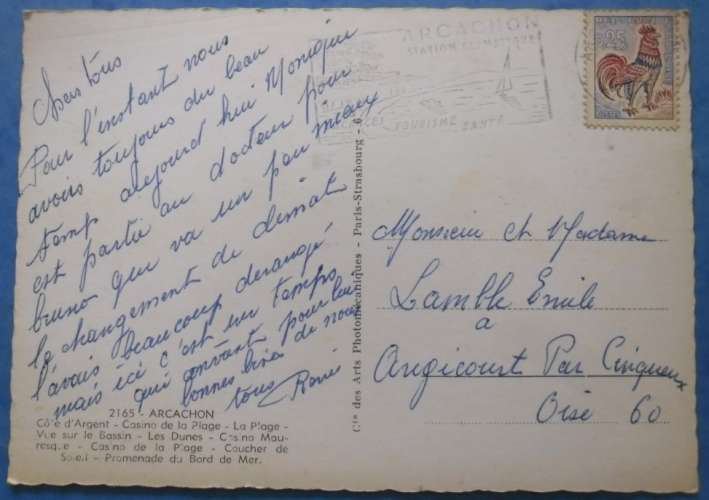 Chers tous
Pour l'instant nous
avons toujours du beau
temp aujourd hui Monique
est partie au docteur pour
bruno que va un peu mieux
le changement de climat
l'avais beaucoup derangé
mais ici c'est un temps
qui convant pour lui
bonnes bises de nous
tous René
2165 - ARCACHON
Côte d'Argent - Casino de la Plage - La Plage -
Vue sur le Bassin - Les Dunes - Casino Mau-
resque - Casino de la Plage - Coucher de
Soleil - Promenade du Bord de Mer.
Cie des Arts Photomécaniques - Paris-Strasbourg - 6
ARCACHON
STATION CLIMATIQUE
TOURISME SANTÉ
Monsieur et Madame
Lamble Emile
a
Angicourt Par Cinqueux
Oise 60